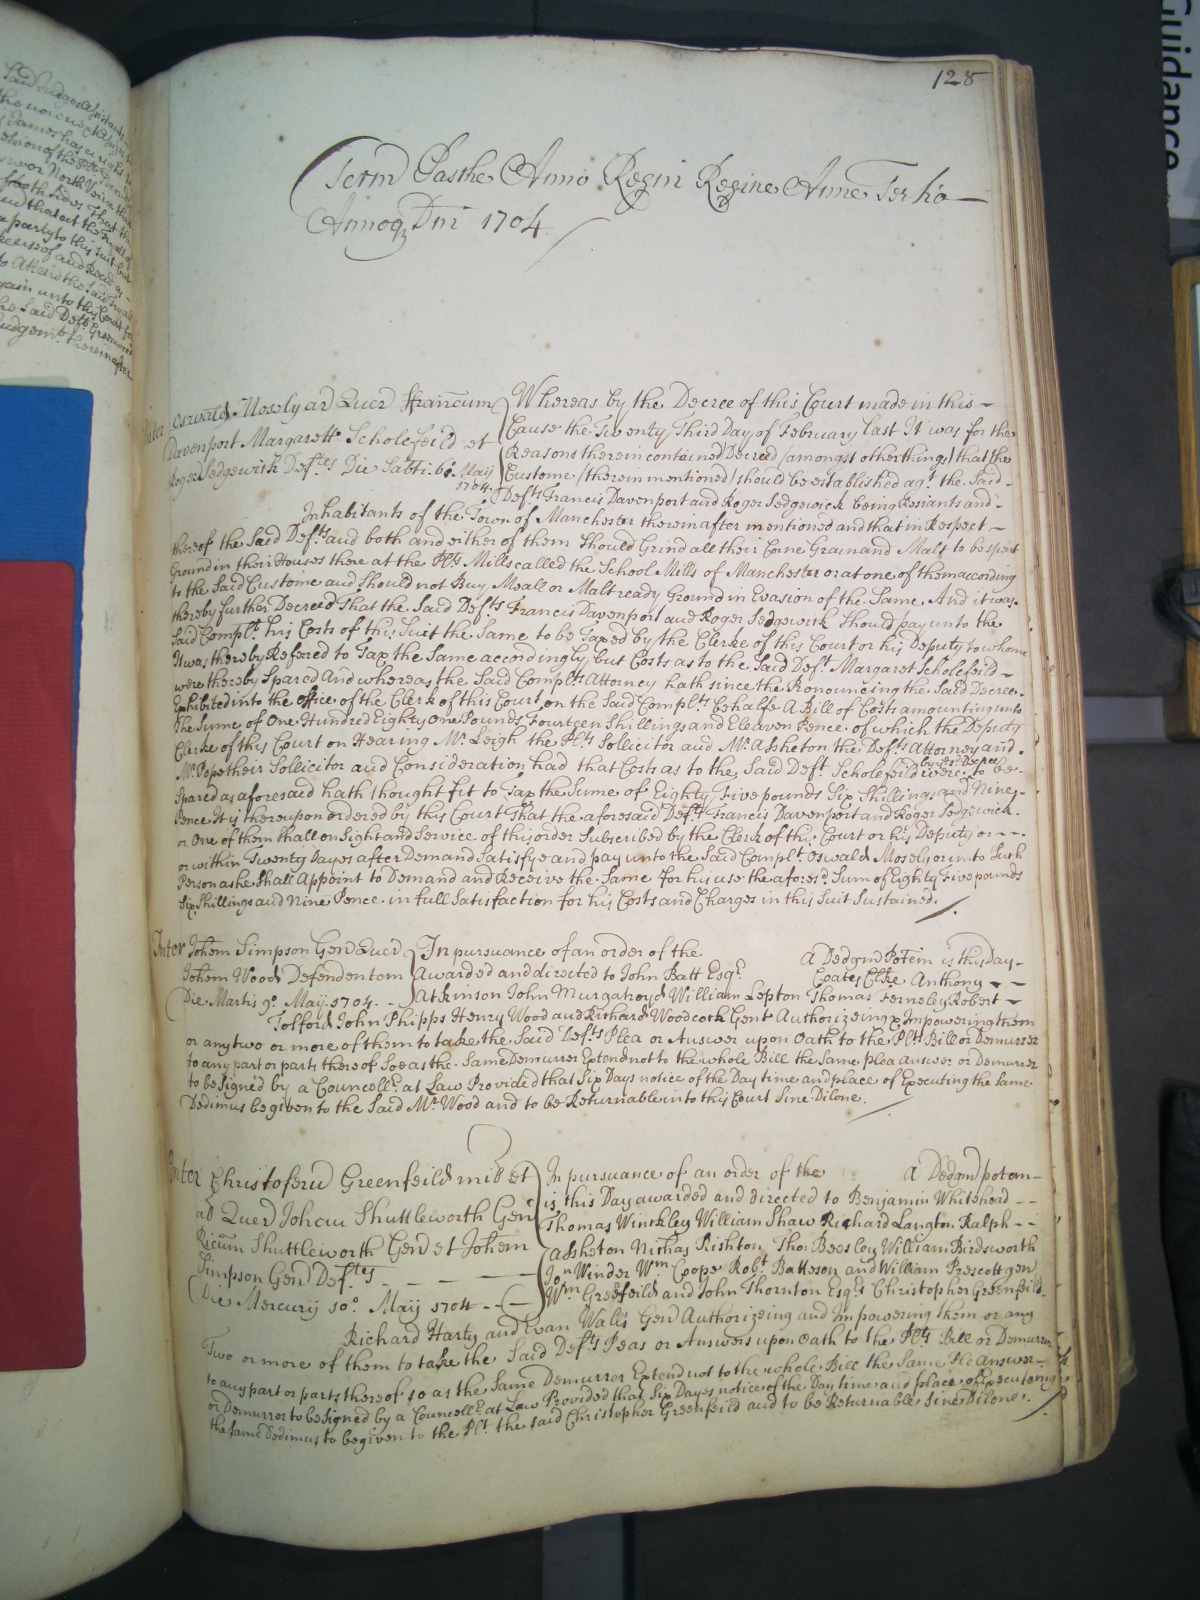 128
Term Pasche Anno Regni Regine Anne Tertio
Annoq Dni 1704
Inter Oswald Mosely ar Quer Francum
Davenport Margarett Scholefeild et
Roger Sedgewick Def.tes Die Sabti: 6o May
1704
Whereas by the Decree of this Court made in this
Cause the Twenty Third Day of February last It was for the
Reasons therein contained Decreed (amongst other things) that the
Custome (therein mentioned) should be established agt. the Said
Defts Francis Davenport and Roger Sedgewick being Resiants and
Inhabitants of the Town of Manchester thereinafter mentioned and that in Respect
thereof the Said Defts and both and either of them Should Grind all their Corne Grain and Malt to be spent
Ground in their Houses there at the Plts Mills called the School Mills of Manchester or at one of them according
to the Said Custome and Should not Buy Meall or Malt ready Ground in Evasion of the Same. And it was
thereby further Decreed That the Said Defts Francis Davenport and Roger Sedgewick Should pay unto the
Said Complt. his Costs of this Suit the Same to be Taxed by the Clerke of this Court or his Deputy to whome
It was thereby Refered to Tax the Same accordingly but Costs as to the Said Deft. Margaret Scholefeild
were thereby Spared And whereas the Said Complts Attorney hath since the Pronouncing the Said Decree
Exhibited into the office of the Clerk of this Court on the Said Complts behalfe A Bill of Costs amounting unto
the Sume of One Hundred Eighty One Pounds Fourteen Shillings and Eleaven Pence of which the Deputy
Clerke of this Court on Hearing Mr. Leigh the Plts Sollicitor and Mr. Asheton the Defts Attorney and
Mr. Pope their Sollicitor and Consideration had that Costs as to the Said Deft. Scholefeild were by ye sd. Decree to be
Spared as aforesaid hath thought fit to Tax the Sume of Eighty Five pounds Six Shillings and Nine
Pence It is thereupon ordered by this Court That the aforesaid Defts. Francis Davenport and Roger Sedgewick
or One of them shall on Sight and Service of this order Subscribed by the Clerk of this Court or his Deputy or
or within Twenty Dayes after Demand Satisfye and pay unto the Said Complt. Oswald Mosely or unto Such
Person as he Shall Appoint to Demand and Receive the Same for his use the aforesd. Sum of Eighty Five pounds
Six Shillings and Nine Pence in full Satisfaction for his Costs and Charges in this Suit Sustained.
Inter Johem Simpson Gen Quer
Johem Wood Defendentem
Die Martis 9o. May 1704
In pursuance of an order of the A Dedgm Potem is this day
Awarded and directed to John Batt Esqr. Coates Clke Anthony
Atkinson John Murgatroyd William Lepton Thomas Ferneley Robert
Tolford John Phipps Henry Wood and Richard Woodcock Gent Authorizeing & Impowering them
or any two or more of them to take the Said Defts Plea or Answer upon Oath to the Plts Bill or Demurrer
to any part or parts thereof Soe as the Same Demurrer Extend not to the whole Bill the Same plea answer or Demurrer
to be Signed by a Councellr. at Law Provided that Six Days notice of the Day time and place of Executing the Same
Dedimus be given to the Said Mr. Wood and to be Returnable into this Court Sine Dilone.
Inter Christoferu Greenfeild mil et
al Quer Johem Shuttleworth Gen
Ricum Shuttleworth Gen et Johem
Simpson Gen Def.tes
Die Mercurij 10o. Maij 1704
In pursuance of an order of the A Dedgm potem
is this Day awarded and directed to Benjamin Whitehead
Thomas Winckley William Shaw Richard Langton Ralph
Assheton Nichas Rishton Tho: Beesley William Birdsworth
Jon Winder Wm. Coope Robt. Batteson and William Prescott gen
Wm Greefeild and John Thornton Esqrs Christopher Greenfeild
Richard Harty and Evan Walls Gen Authorizeing and Impowering them or any
Two or more of them to take the Said Defts Peas or Answers upon Oath to the Plts Bill or Demurrer
to any part or parts thereof so as the Same Demurrer Extend not to the whole Bill the Same Ple Answer
or Demurrer to be Signed by a Councellr. at Law Provided that Six Dayes notice of the Day time and place of Executeing
the same Dedimus to be given to the Plt. the said Christopher Greenfeild and to be Returnable Sine Dilone.
Guidance